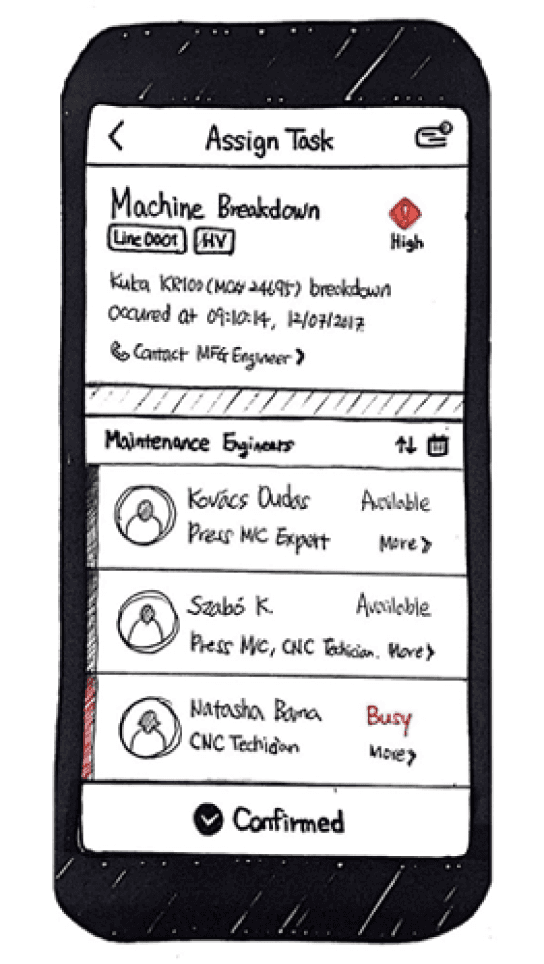 Assign Task
Machine Breakdown
High
Line 0001 HV
Kuka KR100 (MON 24695) breakdown
occured at 09:10:14, 12/07/2017
Contact MFG Engineer >
Maintenance Engineers
Kovács Dudas Available
Press M/C Expert More >
Szabó K. Available
Press M/C, CNC Techician. More >
Natasha Barna Busy
CNC Techician More >
Confirmed